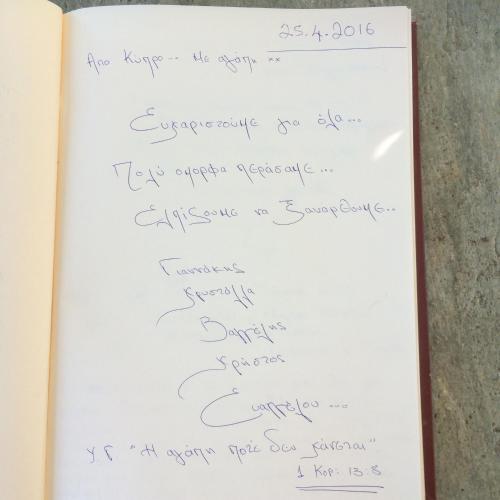 25.4.2016
Απο Κύπρο... Με αγάπη xx
Ευχαριστούμε για όλα...
Πολύ ομορφα περάσαμε...
Ελπίζουμε να ξαναρθουμε..
Γιαννάκης
Χρυστάλλα
Βαγγέλης
Χρήστος
Ευαγγέλου...
Υ Γ "Η αγάπη ποτέ δεν χάνεται"
1 Κορ: 13:8